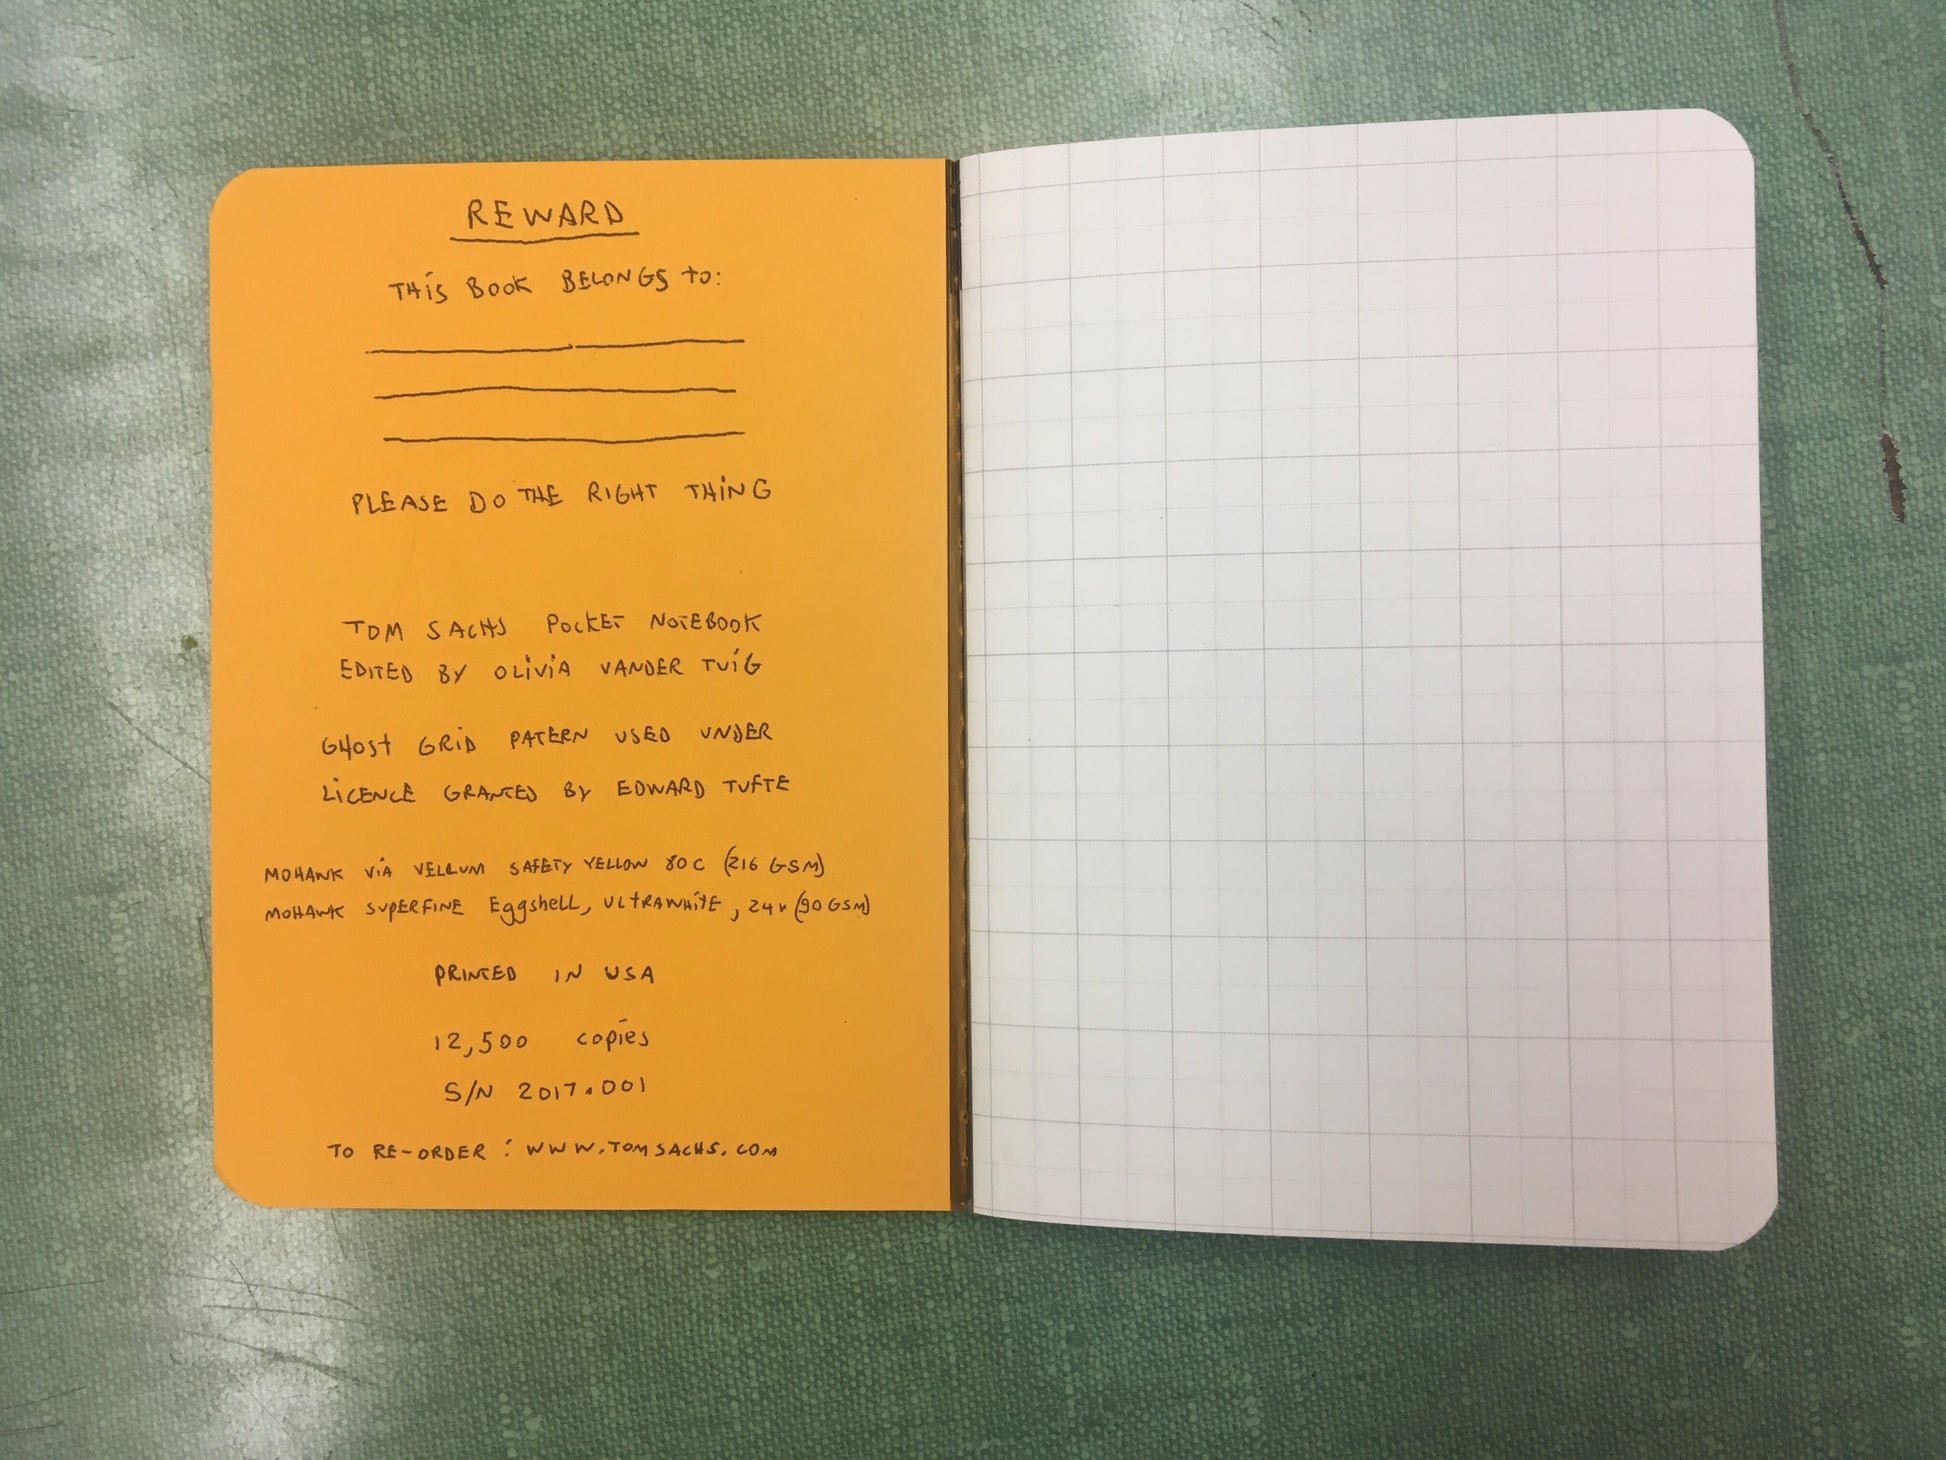 REWARD
THiS BOOK BELONGS to:
PLEASE DO THE RIGHT THiNG
TOM SACHS POCKET NOTEBOOK
EDITED BY OLiViA VANDER TUiG
GHOSt GRiD PATERN USED UNDER
LiCENCE GRANTED BY EDWARD TUFTE
MOHAWK ViA VELLUM SAFETY YELLOW 80 C (216 GSM)
MOHAWK SUPERFINE EggshELL, ULtRAWHiTE, 24# (90 GSM)
PRINTED IN USA
12,500 copies
S/N 2017.001
TO RE-ORDER: WWW.TOMSACHS.COM